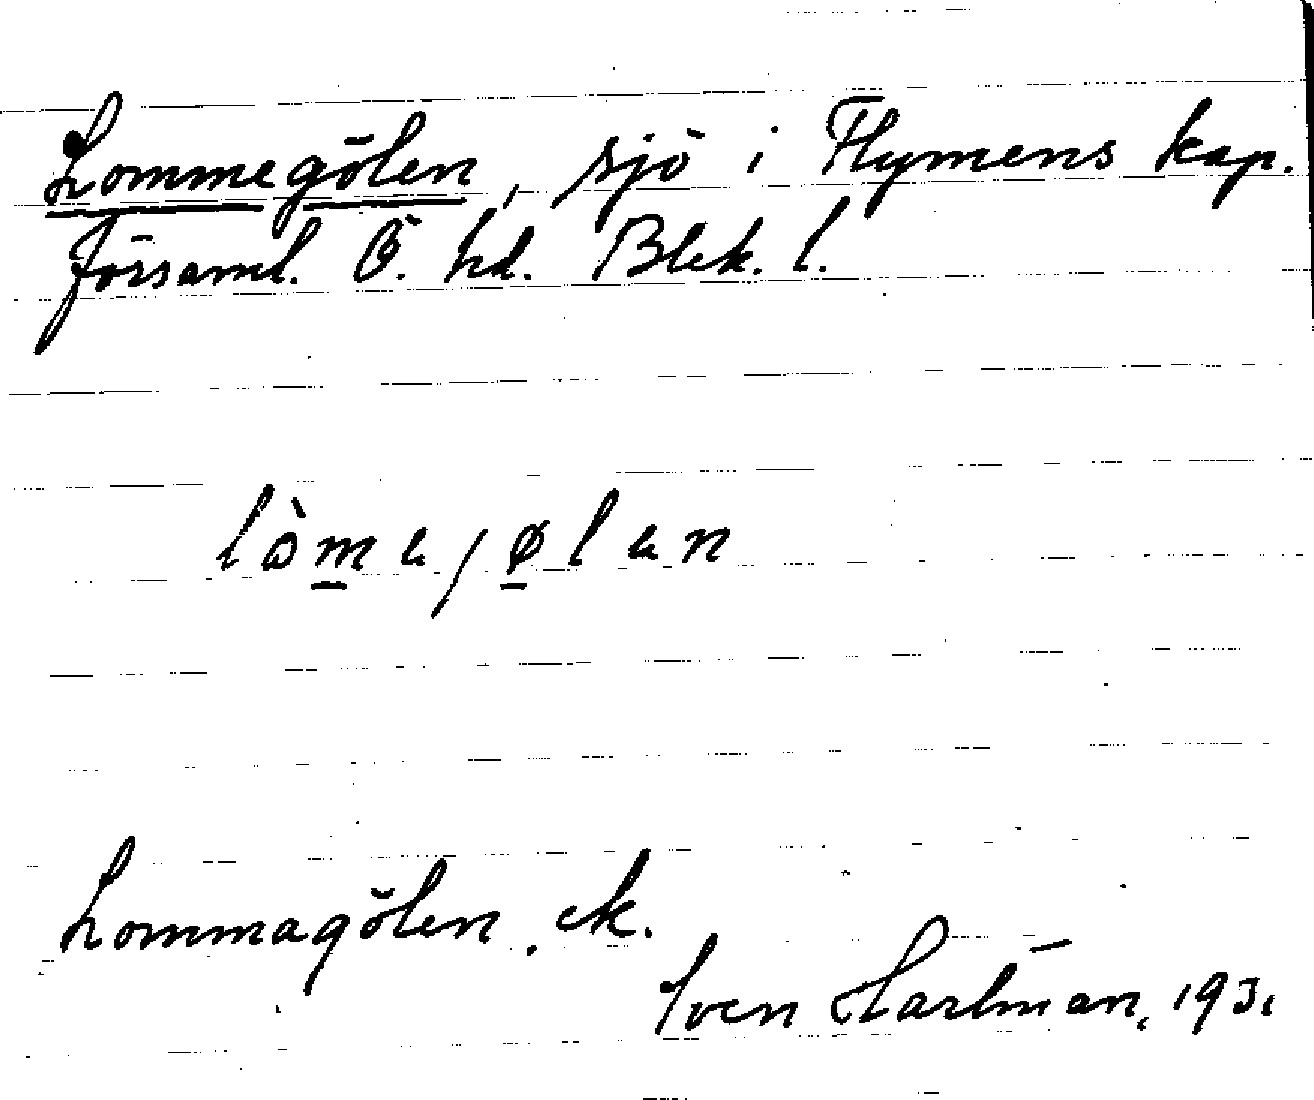 Lommegölen, sjö i Flymens kap.
församl. Ö. hd. Blek. l.
lòmeȷølen
Lommagölen. ek.
Sven Hartman, 1931